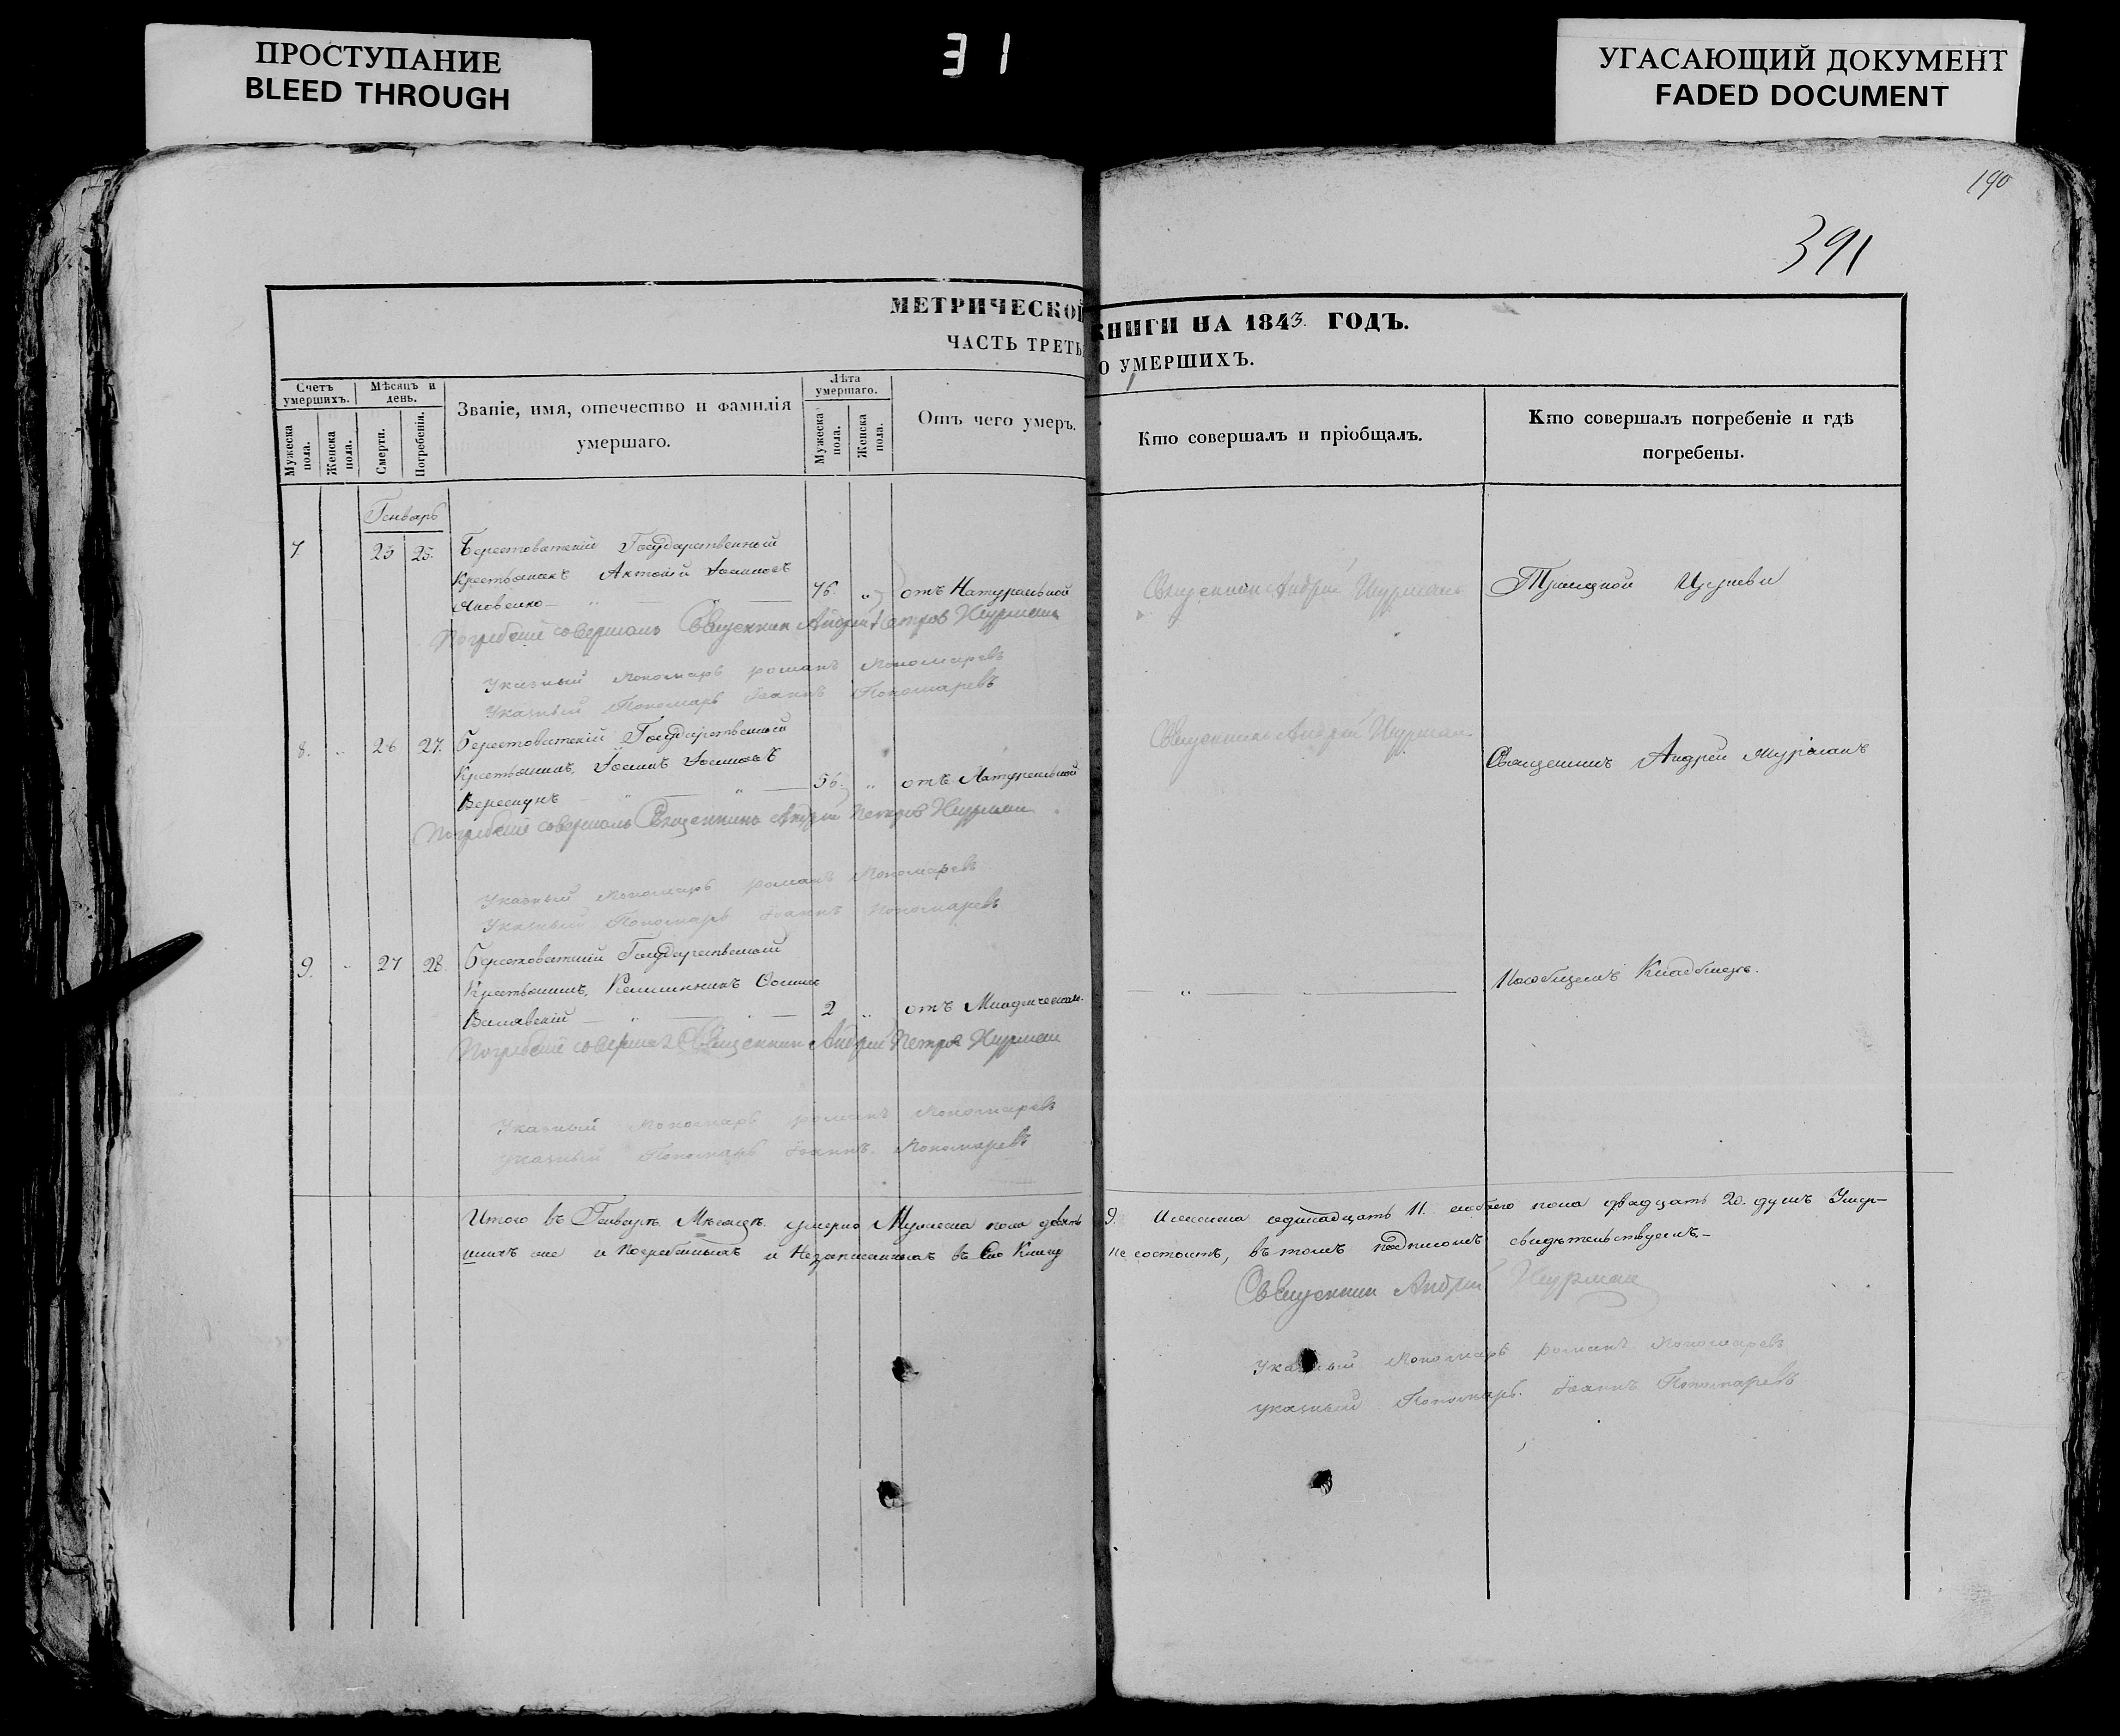 ПРОСТУПАНИЕ
BLEED THROUGH
31
УГАСАЮЩИЙ ДОКУМЕНТ
FADED DOCUMENT
190
391
МЕТРИЧЕСКОЙ КНИГИ НА 1843. ГОДЪ.
ЧАСТЬ ТРЕТЬ О УМЕРШИХЪ.
Счетъ умершихъ.
Мѣсяцъ и день.
Званіе, имя, отечество и фамилія умершаго.
Лѣта умершаго.
Отъ чего умеръ.
Кто совершалъ и пріобщалъ.
Кто совершалъ погребеніе и гдѣ погребены.
Мужеска пола.
Женска пола.
Смерти.
Погребенія.
Мужеска пола.
Женска пола.
Генварь
7 23 25. Берестоватскій Государственный
Крестьянинъ Антоній Іоанновъ
Яковенко 76. " отъ Натуральной
Священник Андрей
Троицкой Церкви
Погребеніе совершалъ Священник Андрей Петров
Указный Пономарь романъ Пономаревъ
Указный Пономарь Іоаннъ Пономаревъ
8. 26 27. Берестоватскій Государственный
Крестьянинъ, Іоаннъ Іоанновъ
56. " отъ Натуральной
Священникъ Андрей
Священникъ Андрей
Погребеніе совершалъ Священникъ Андрей Петров
Указный Пономарь романъ Пономаревъ
Указный Пономарь Іоаннъ Пономаревъ
9. 27 28. Берестоватскій Государственный
Крестьянинъ,
2 " отъ Младенческой.
Кладбищѣ.
Погребеніе совершал Священник Андрей Петров
Указный Пономарь романъ Пономаревъ
указный Пономарь Іоаннъ. Пономаревъ
Итого въ Генварѣ Мѣсяцѣ умерло Мужеска пола девять 9. Женска одинадцать 11. обоего пола двадцать 20. душъ Умер-
шихъ же и Погребенныхъ и Незаписанныхъ въ Сію Книгу не состоитъ, въ томъ подписомъ свидѣтельствуемъ.-
Священник Андрей
Указный Пономарь романъ Пономаревъ
указный Пономарь. Іоаннъ Пономаревъ